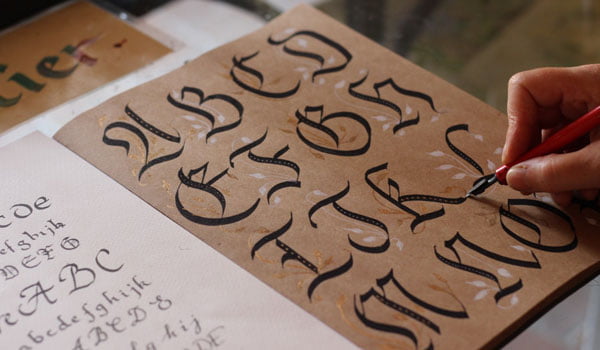 lier
A B C D
E F G H
I J K L
M N O
cDe
efghijk
DEFG
ABC
abcdefghijk
efghij